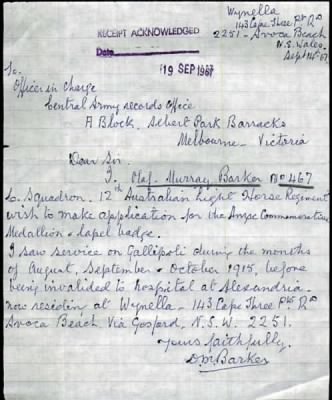 Wynella
143 Cape Three Pt Rd
2251 - Avoca Beach
N.S. Wales.
Sept 14th 67
RECEIPT ACKNOWLEDGED
Date
19 SEP 1967
To.
Officer in Charge
Central Army Records Office.
A Block, Albert Park Barracks
Melbourne - Victoria
Dear Sir.
I. Olaf. Murray. Barker No 467
C. Squadron. 12th Australian Light Horse Regiment
wish to make application for the Anzac Commemorative
Medallion & lapel badge.
I saw service on Gallipoli during the months
of August, September & October 1915, before
being invalided to hospital at Alexandria.
now residing at Wynella - 143 Cape Three Pts Rd
Avoca Beach Via Gosford, N.S.W. 2251.
Yours faithfully.
O.M. Barker